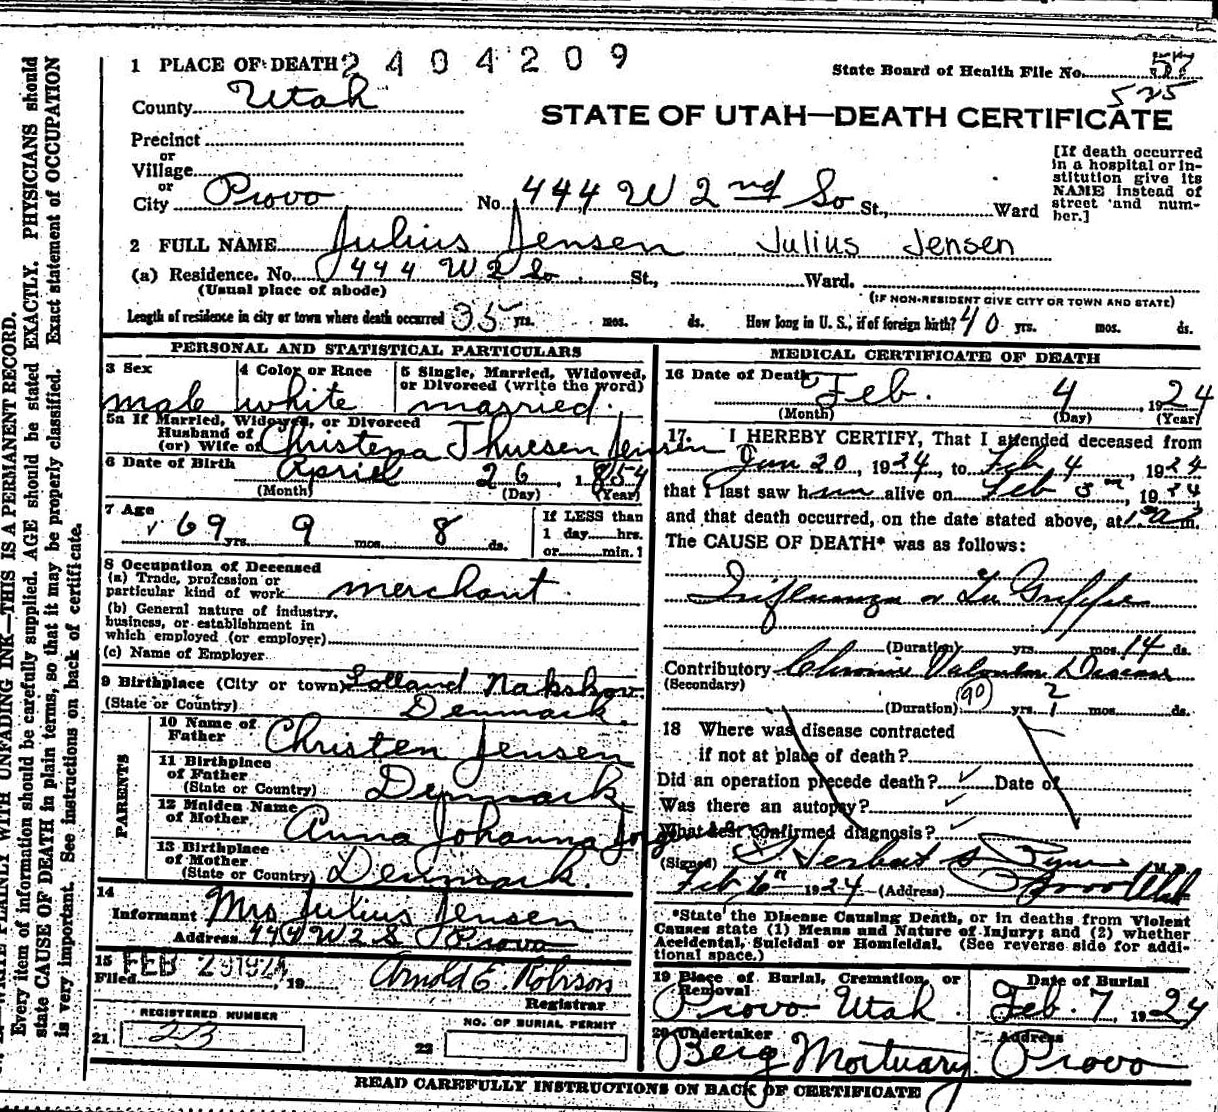 1 PLACE OF DEATH 2404209
State Board of Health File No. 57
525
County Utah
STATE OF UTAH—DEATH CERTIFICATE
Precinct
or
Village
or
City Provo No. 444 W 2nd So St., Ward
[If death occurred in a hospital or institution give its NAME instead of street and number.]
2 FULL NAME Julius Jensen Julius Jensen
(a) Residence. No. 444 W 2 So St., Ward.
(Usual place of abode) (IF NON-RESIDENT GIVE CITY OR TOWN AND STATE)
Length of residence in city or town where death occurred 35 yrs. mos. ds. How long in U. S., if of foreign birth? 40 yrs. mos. ds.
PERSONAL AND STATISTICAL PARTICULARS
3 Sex
male
4 Color or Race
white
5 Single, Married, Widowed, or Divorced (write the word)
married.
5a If Married, Widowed, or Divorced
Husband of
(or) Wife of Christena Thuesen Jensen
6 Date of Birth April 26, 1854
(Month) (Day) (Year)
7 Age
69 yrs. 9 mos. 8 ds.
If LESS than
1 day hrs.
or min.
8 Occupation of Deceased
(a) Trade, profession or
particular kind of work merchant
(b) General nature of industry,
business, or establishment in
which employed (or employer)
(c) Name of Employer
9 Birthplace (City or town) Lolland Nakskov
(State or Country) Denmark.
PARENTS
10 Name of
Father Christen Jensen
11 Birthplace
of Father
(State or Country) Denmark
12 Maiden Name
of Mother Anna Johanna
13 Birthplace
of Mother
(State or Country) Denmark.
14
Informant Mrs Julius Jensen
Address 444 W 2 S Provo
15 FEB 29 1924
Filed , 19 Arnold E. Robison
Registrar
REGISTERED NUMBER
21 23
NO. OF BURIAL PERMIT
22
MEDICAL CERTIFICATE OF DEATH
16 Date of Death Feb. 4, 1924
(Month) (Day) (Year)
17. I HEREBY CERTIFY, That I attended deceased from
Jan 20, 1924, to Feb 4, 1924
that I last saw him alive on Feb 3, 1924
and that death occurred, on the date stated above, at m.
The CAUSE OF DEATH* was as follows:
Influenza or La Grippe
(Duration) yrs. mos. 14 ds.
Contributory Chronic Valvular Disease
(Secondary)
(90) 2
(Duration) yrs. mos. ds.
18 Where was disease contracted
if not at place of death?
Did an operation precede death? ✓ Date of
Was there an autopsy? ✓
What test confirmed diagnosis? ✓
(Signed) Herbert S Pyne M.D.
Feb 6" 1924 (Address) Provo Utah
*State the Disease Causing Death, or in deaths from Violent
Causes state (1) Means and Nature of Injury; and (2) whether
Accidental, Suicidal or Homicidal. (See reverse side for additional space.)
19 Place of Burial, Cremation, or
Removal
Provo Utah.
Date of Burial
Feb. 7, 1924
20 Undertaker
Berg Mortuary.
Address
Provo
READ CAREFULLY INSTRUCTIONS ON BACK OF CERTIFICATE
WRITE PLAINLY WITH UNFADING INK—THIS IS A PERMANENT RECORD.
Every item of information should be carefully supplied. AGE should be stated EXACTLY. PHYSICIANS should
state CAUSE OF DEATH in plain terms, so that it may be properly classified. Exact statement of OCCUPATION
is very important. See instructions on back of certificate.